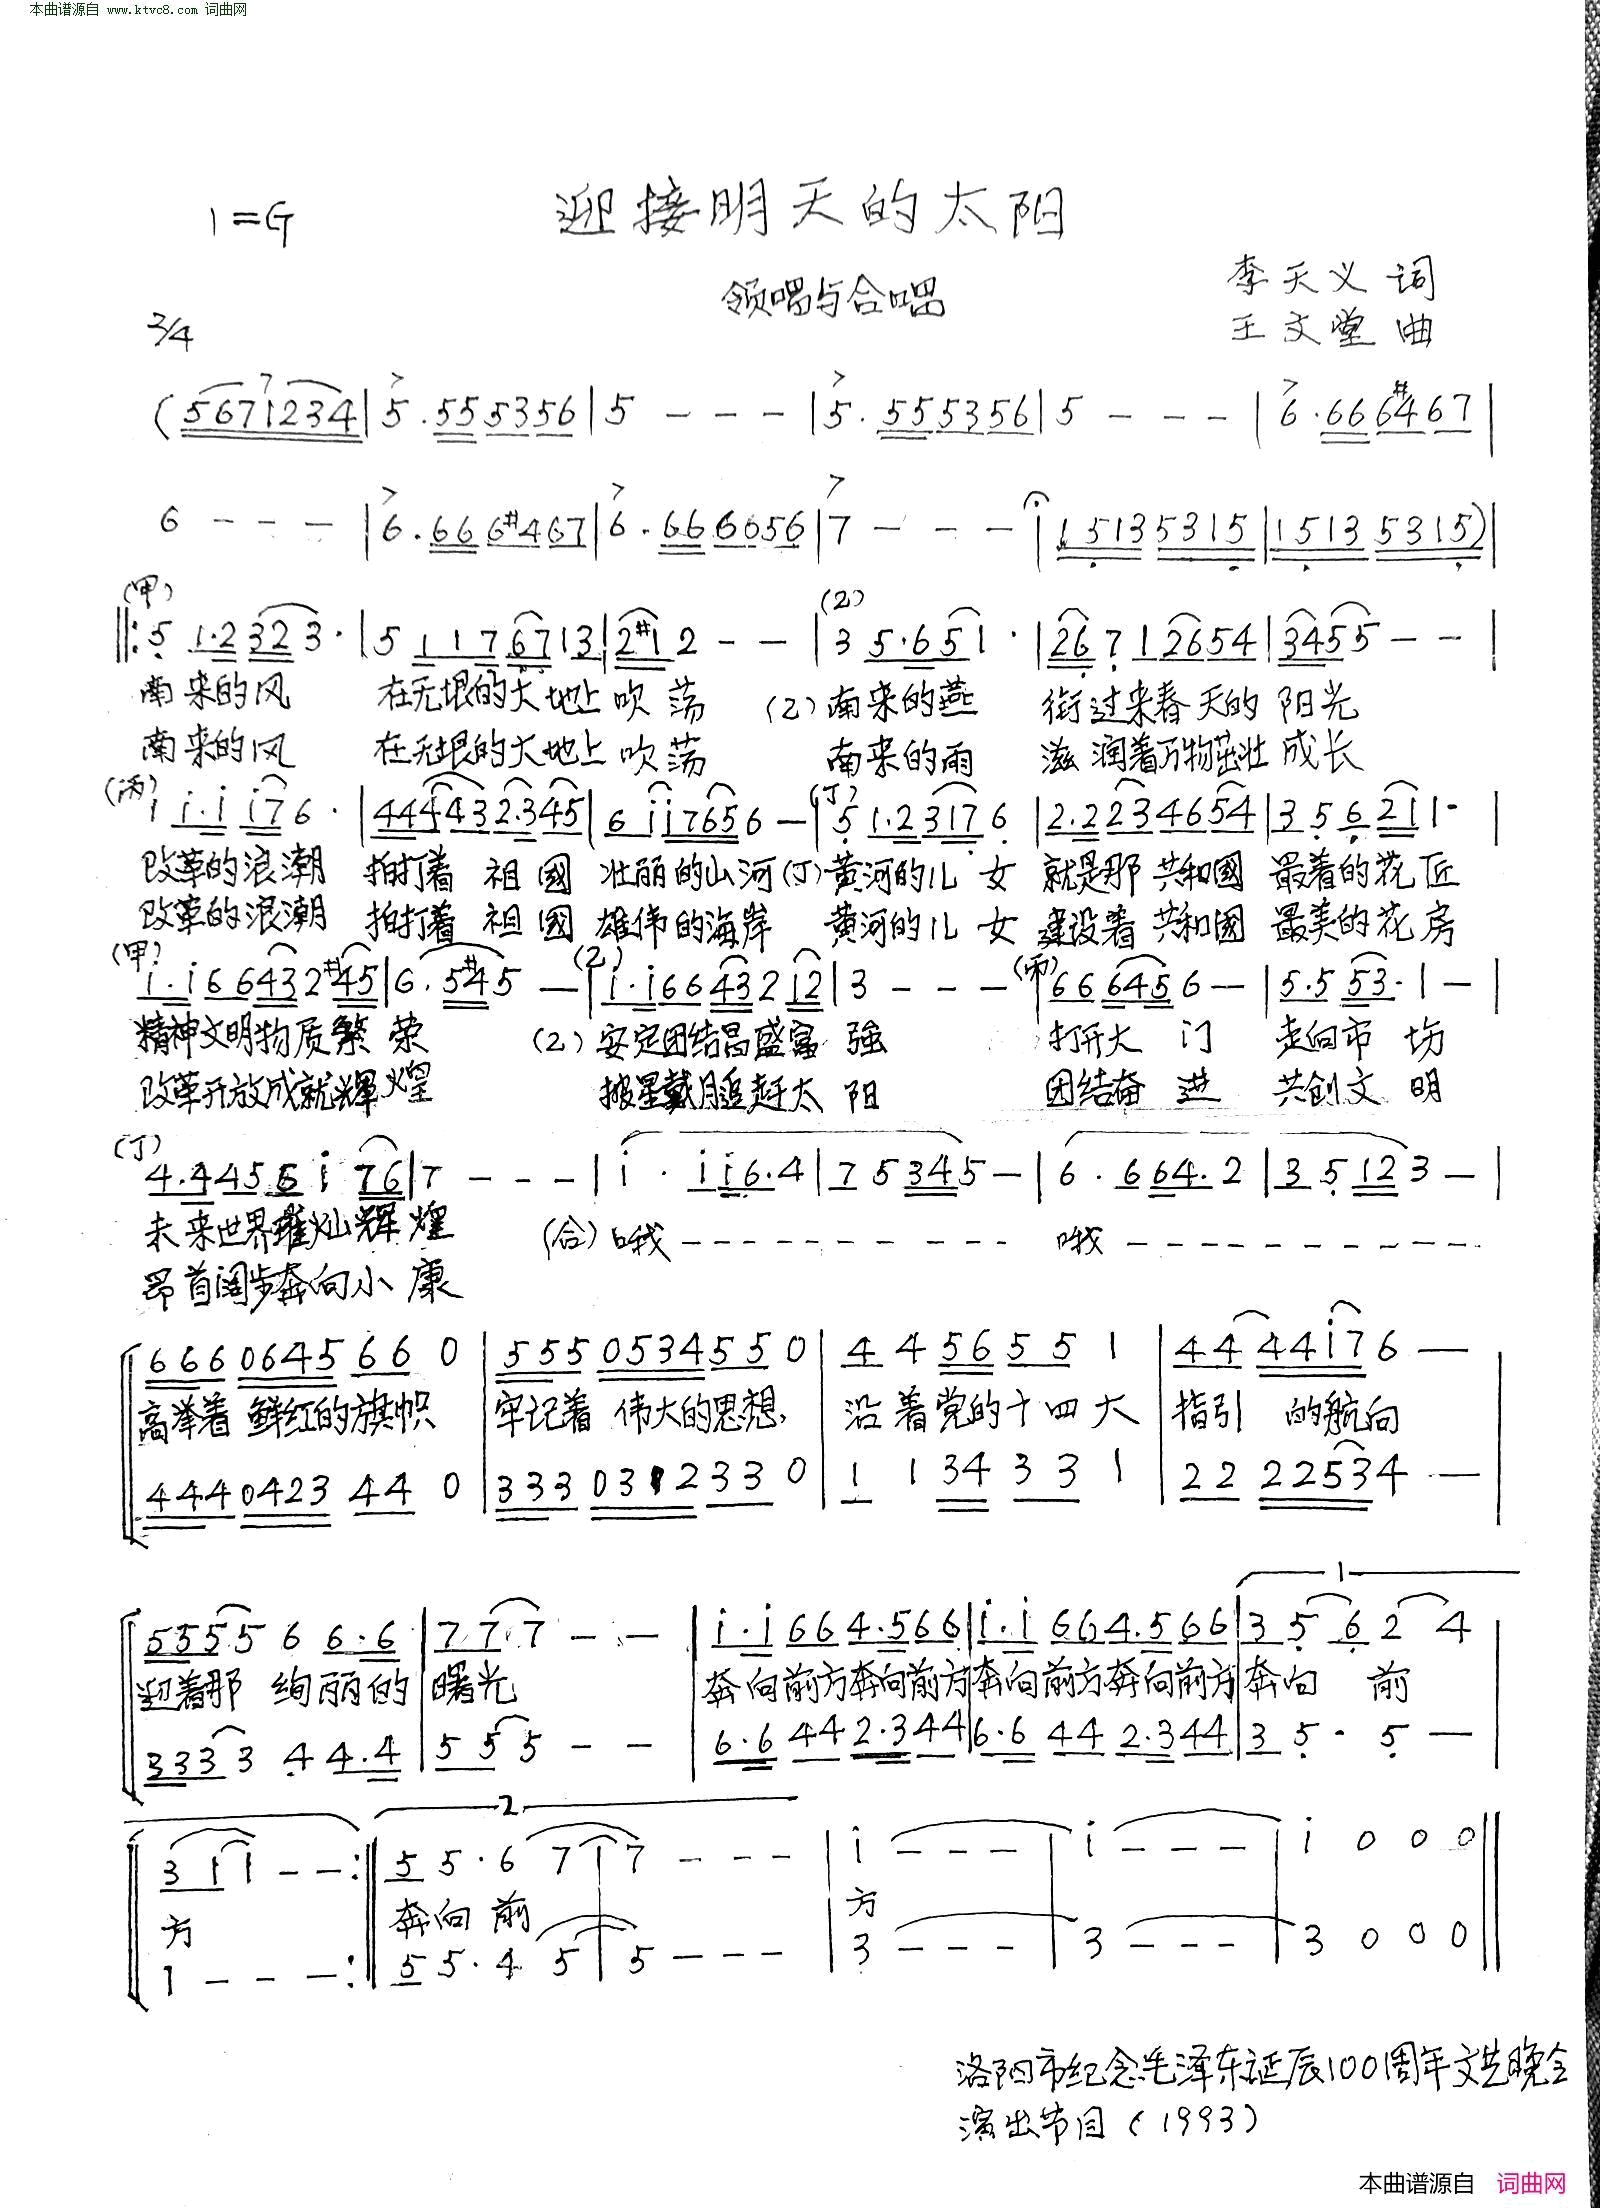 本曲谱源自 www.ktvc8.com 词曲网
1=G 迎接明天的太阳
领唱与合唱
李天义 词
2/4 王文堂 曲
(5671234|5.555356|5 - - -|5.555356|5 - - -|6.666#467|
6 - - -|6.666#467|6.666056|7 - - -|15135315|15135315)|
(甲) (乙)
‖:5 1.2323.|5 1176713|2#12 - -|3 5.651.|26712654|3455 - -|
南来的风 在无垠的大地上吹荡 (乙)南来的燕 衔过来春天的阳光
南来的风 在无垠的大地上吹荡 南来的雨 滋润着万物茁壮成长
(丙) (丁)
1 i.i i76.|444432.345|6ii7656 -|5 1.23176|2.2234654|356211.|
改革的浪潮 拍打着祖國 壮丽的山河 (丁)黄河的儿女 就是那共和國 最着的花匠
改革的浪潮 拍打着祖國 雄伟的海岸 黄河的儿女 建设着共和國 最美的花房
(甲) (乙) (丙)
i.i66432#45|6.5#45 -|i.i6643212|3 - - -|666456 -|5.553.1 -|
精神文明物质繁荣 (乙)安定团结昌盛富强 打开大门 走向市场
改革开放成就辉煌 披星戴月追赶太阳 团结奋进 共创文明
(丁)
4.4455i76|7 - - -|i.ii6.4|753455 -|6.664.2|35123 -|
未来世界璀灿辉煌 (合)哦 - - - - - - - - - - 哦 - - - - - - - - - - -
昂首阔步奔向小康
6660645660|5550534550|4456551|4444i76 -|
高举着鲜红的旗帜 牢记着伟大的思想、 沿着党的十四大 指引的航向
4440423440|3330312330|1134331|2222534 -|
1
555566.6|777 - -|i.i664.566|i.i664.566|35624|
迎着那绚丽的曙光 奔向前方奔向前方奔向前方奔向前方奔向前
333344.4|555 - -|6.6442.344|6.6442.344|35.5 -|
2
311 - -:‖55.67|7 - - -|i - - -|i - - -|i000‖
方 奔向前 方
1 - - -:‖55.45|5 - - -|3 - - -|3 - - -|3000‖
洛阳市纪念毛泽东诞辰100周年文艺晚会
演出节目(1993)
本曲谱源自 词曲网